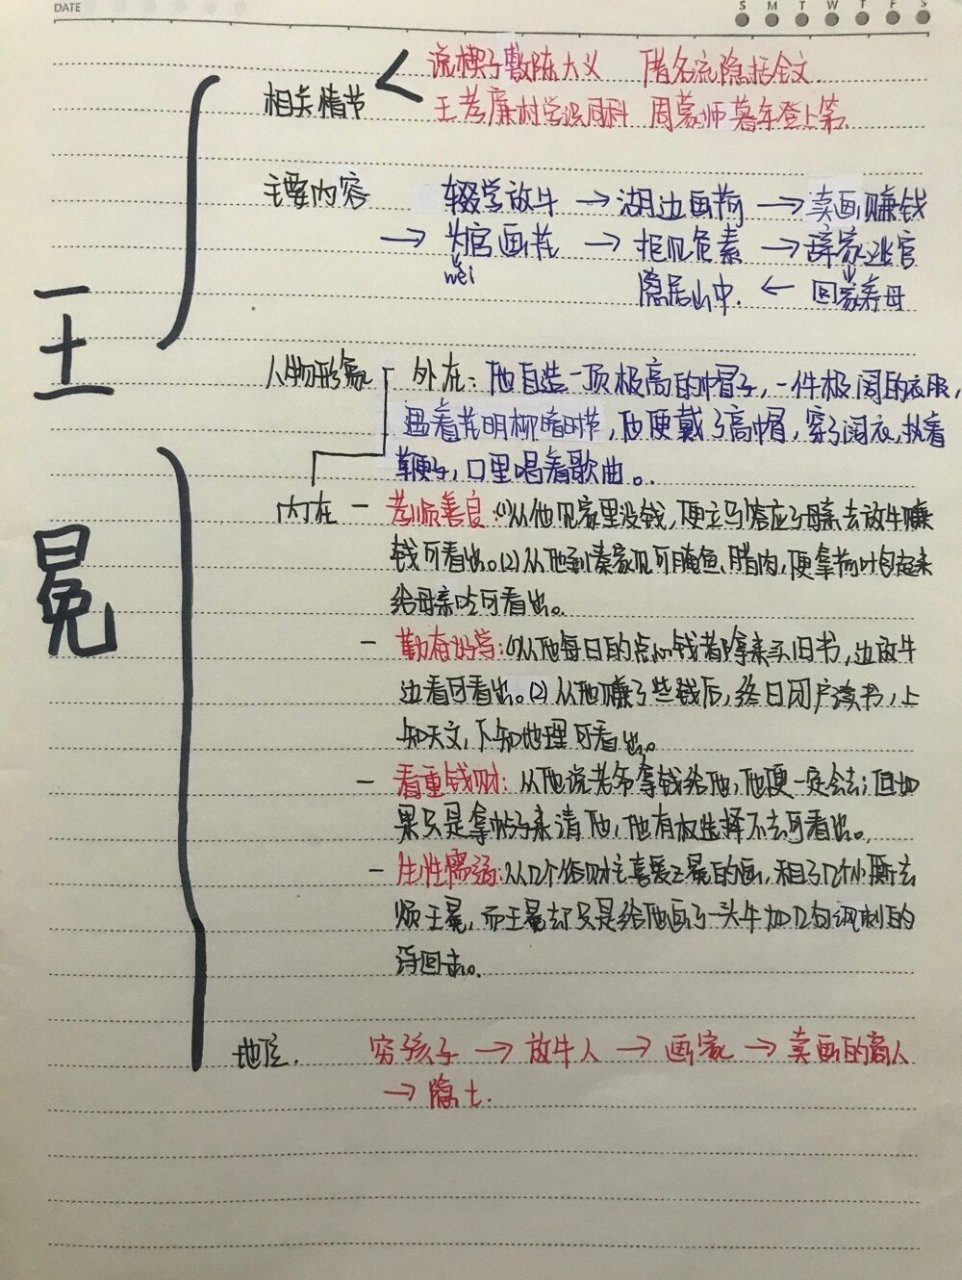 DATE
S M T W T F S
相关情节
说楔子敷陈大义 借名流隐括全文
王孝廉村学识同科 周蒙师暮年登上第.
主要内容 辍学放牛 → 湖边画荷 → 卖画赚钱
→ 为官画花 → 拒见危素 → 辞家逃官
wéi 隐居山中. ← 回家养母
王冕
人物形象 外在：他自造一顶极高的帽子，一件极阔的衣服，
遇着花明柳暗时节，他便戴了高帽，穿了阔衣，执着
鞭子，口里唱着歌曲。
内在 — 孝顺善良：(1)从他见家里没钱，便立马答应了母亲去放牛赚
钱可看出。(2)从他到秦家见可腌鱼、腊肉，便拿荷叶包起来
给母亲吃可看出。
— 勤奋好学：(1)从他每日的点心钱都拿来买旧书，边放牛
边看可看出。(2)从他赚了些钱后，终日闭户读书，上
知天文，下知地理可看出。
— 看重钱财：从他说老爷拿钱给他，他便一定会去；但如
果只是拿帖子来请他，他有权选择不去可看出。
— 生性懦弱：从几个俗财主喜爱王冕的画，和了几个小厮去
烦王冕，而王冕却只是给他画了一头牛加几句讽刺的
诗回去。
地位. 穷孩子 → 放牛人 → 画家 → 卖画的商人
→ 隐士.